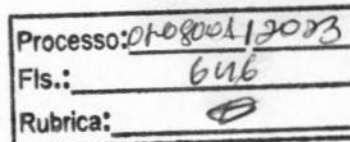 Processo: 0708001/2023
Fls.: 646
Rubrica: